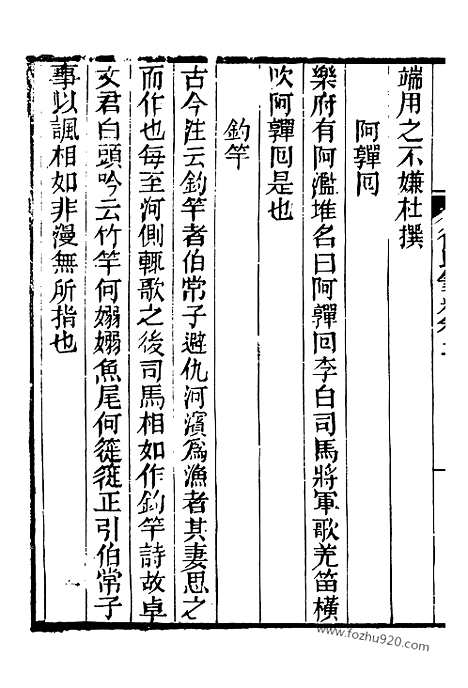 端用之不嫌杜撰
阿嚲囘
樂府有阿濫堆名曰阿嚲回李白司馬將軍歌羌笛橫
吹阿嚲囘是也
釣竿
古今注云釣竿者伯常子避仇河濱爲漁者其妻思之
而作也每至河側輒歌之後司馬相如作釣竿詩故卓
文君白頭吟云竹竿何嫋嫋魚尾何簁簁正引伯常子
事以諷相如非漫無所指也
www.fozhu920.com